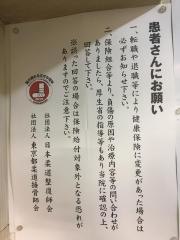 患者さんにお願い
一、転職や退職等により健康保険に変更があった場合は
必ずお知らせ下さい。
二、保険組合等より、負傷の原因や治療内容等の問い合わせが
ありましたら、厚生省の指導等もあり当院に確認の上、
回答して下さい。
※誤った回答の場合は保険給付対象外となる恐れが
ありますのでご注意下さい。
社団法人 日本柔道整復師会
社団法人 東京都柔道接骨師会